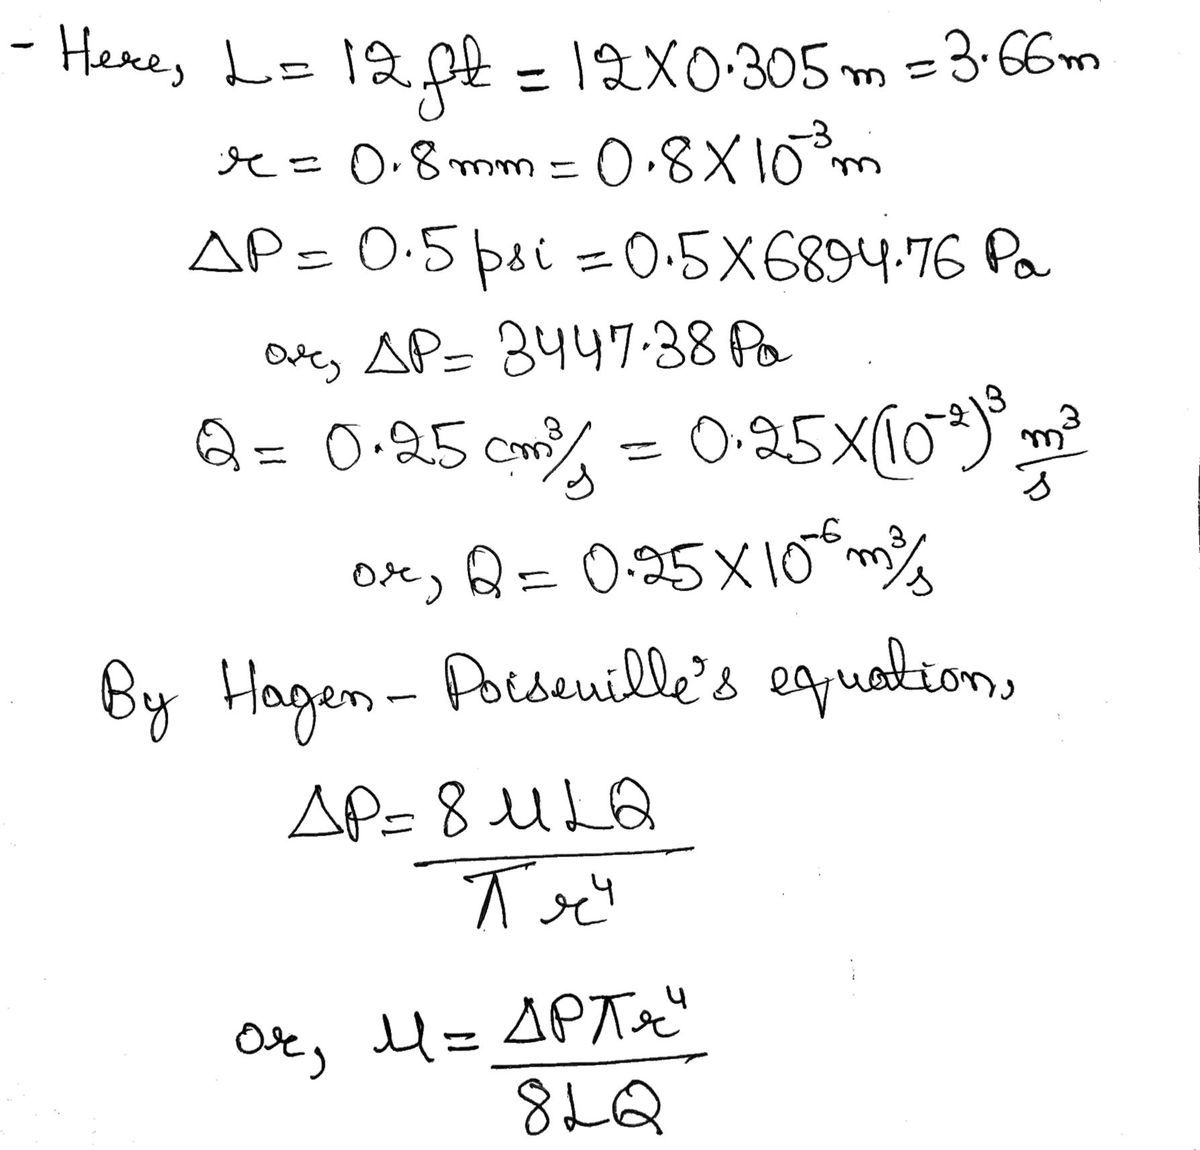 - Here, L = 12 ft = 12 X 0.305 m = 3.66 m
r = 0.8 mm = 0.8 X 10⁻³ m
ΔP = 0.5 psi = 0.5 X 6894.76 Pa
or, ΔP = 3447.38 Pa
Q = 0.25 cm³/s = 0.25 X (10⁻²)³ m³/s
or, Q = 0.25 X 10⁻⁶ m³/s
By Hagen - Poiseuille's equation,
ΔP = 8 μ L Q / π r⁴
or, μ = ΔP π r⁴ / 8 L Q